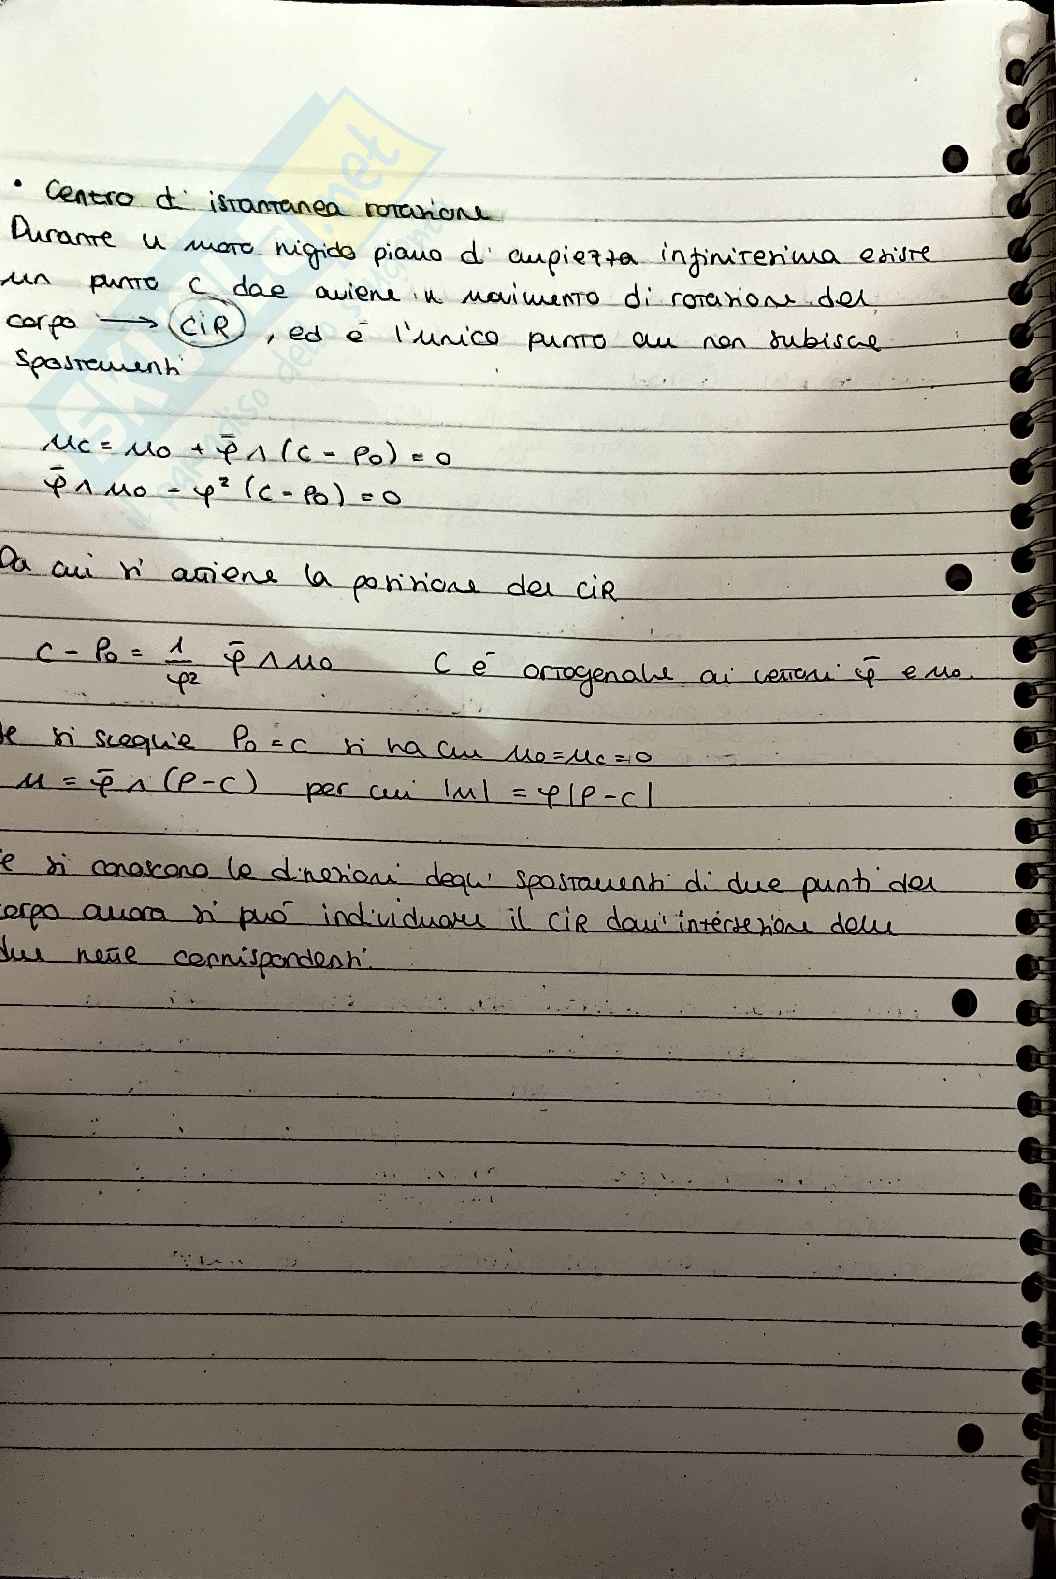 • Centro di istantanea rotazione
Durante u moto rigido piano di ampiezza infinitesima esiste
un punto C dae aviene il movimento di rotazione del
corpo → CiR, ed è l'unico punto che non subisce
spostamenti
uc = u0 + φ̄ ∧ (C - P0) = 0
φ̄ ∧ u0 - φ² (C - P0) = 0
Da cui si ottiene la posizione del CiR
C - P0 = 1/φ² φ̄ ∧ u0 C è ortogonale ai vettori φ̄ e u0
se si sceglie P0 = C si ha che u0 = uc = 0
u = φ̄ ∧ (P - C) per cui |u| = φ|P - C|
se si conoscono le direzioni degli spostamenti di due punti del
corpo allora si può individuare il CiR dall'intersezione delle
due rette corrispondenti.
SKUOLA.net
il paradiso dello studente